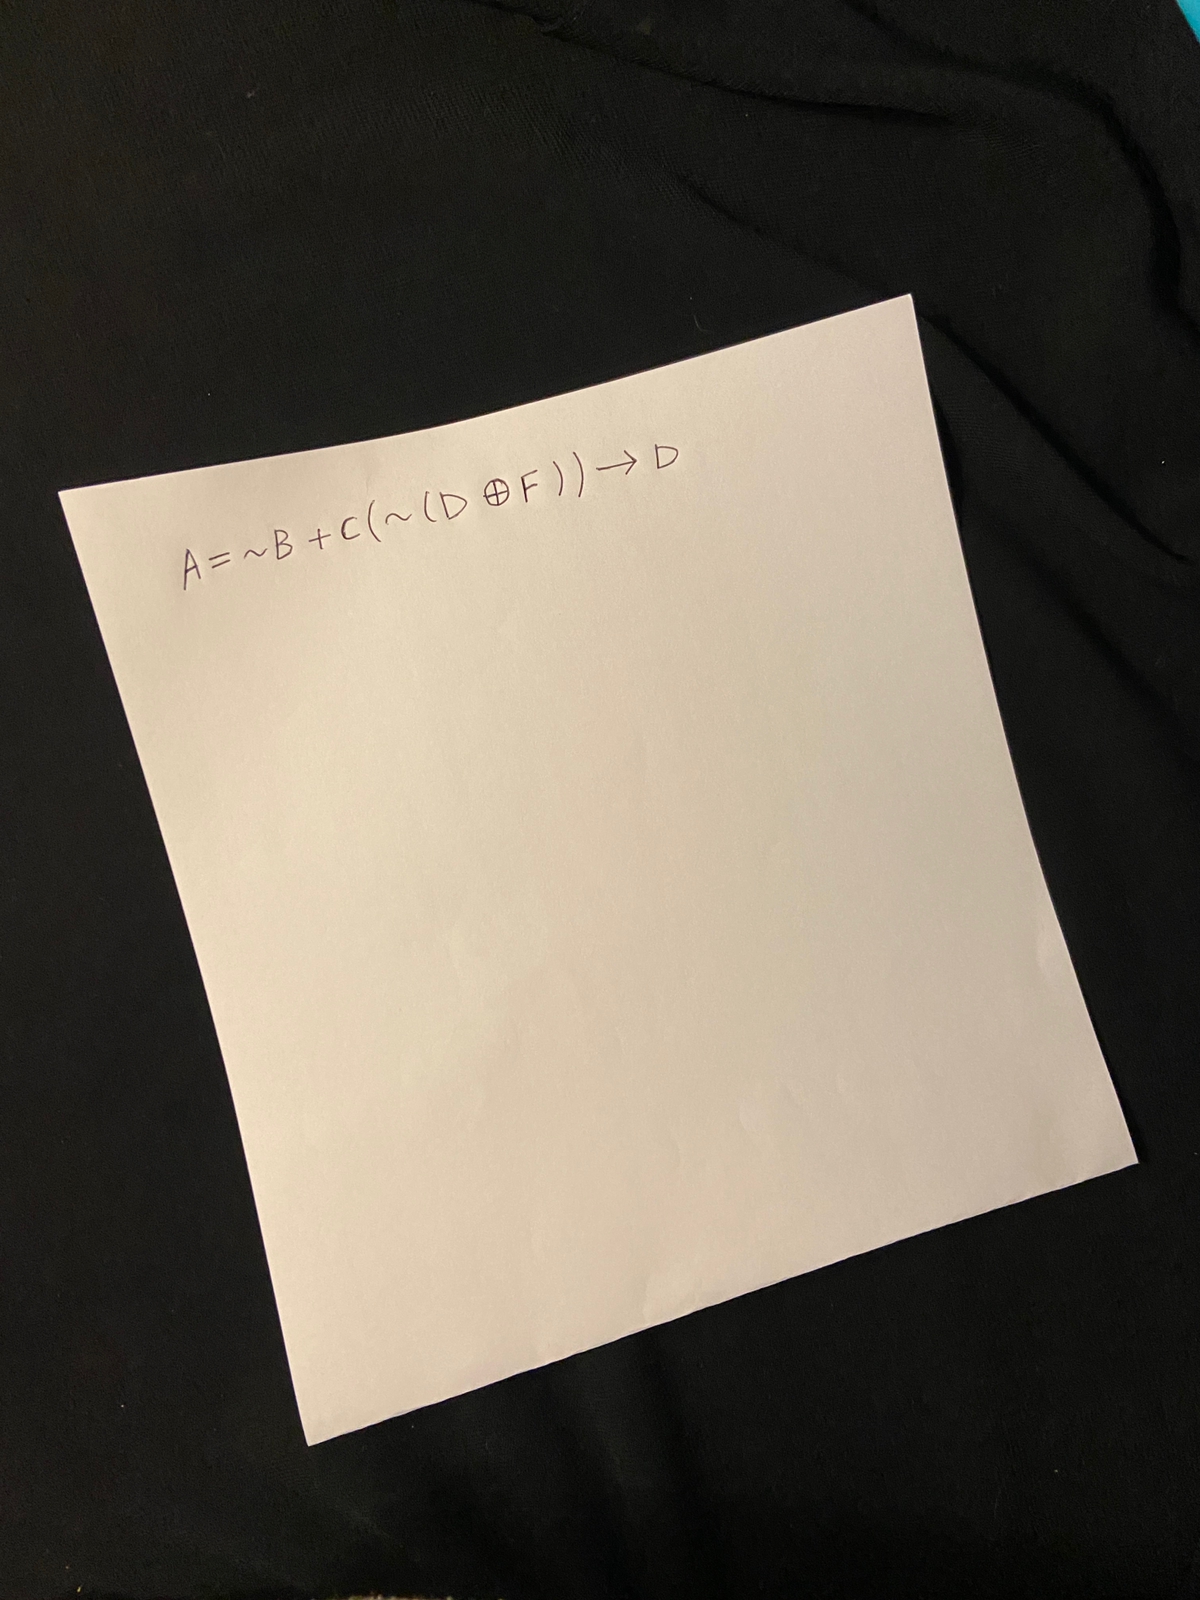 A=~B+C(~(D⊕F))→D